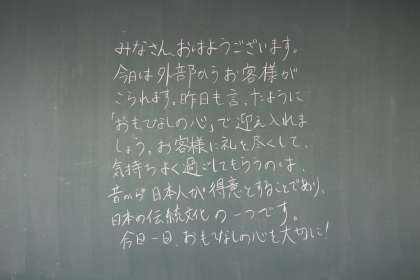 みなさん、おはようございます。
今日は外部からお客様が
こられます。昨日も言ったように
「おもてなしの心」で迎え入れま
しょう。お客様に礼を尽くして、
気持ちよく過ごしてもらうのは、
昔から日本人が得意とすることであり、
日本の伝統文化の一つです。
今日一日、おもてなしの心を大切に!